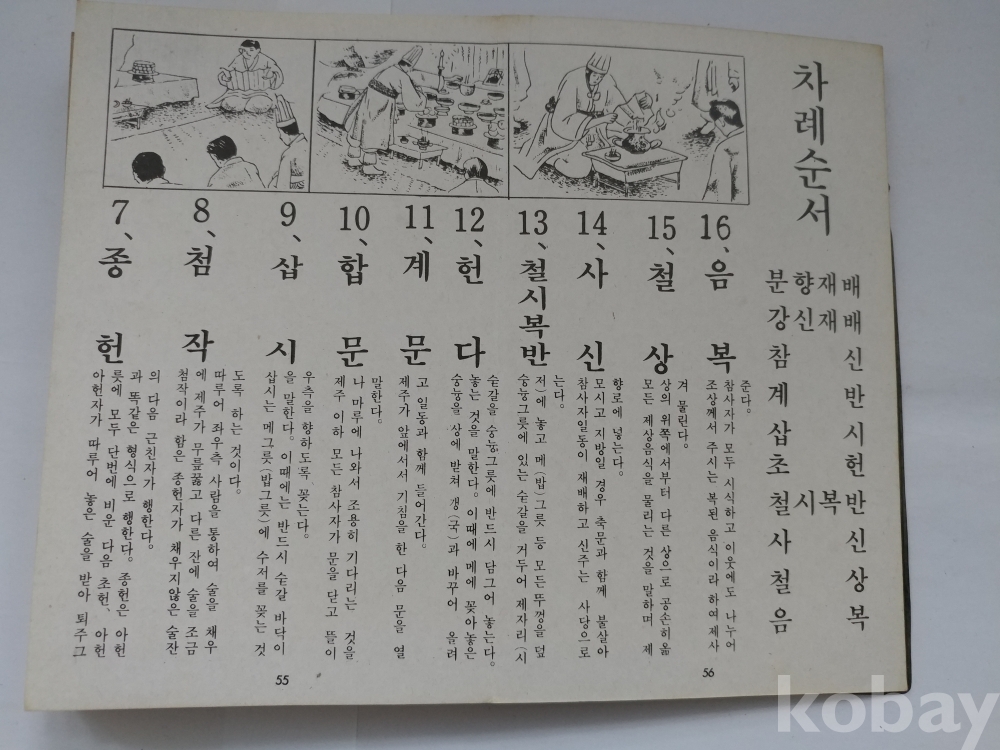 7、종헌
아헌자가 따루어 놓은 술을 받아 퇴주그
릇에 모두 단번에 비운 다음 초헌、아헌
과 똑같은 형식으로 행한다. 종헌은 아헌
의 다음 근친자가 행한다.
8、첨작
첨작이라 함은 종헌자가 채우지않은 술잔
에 제주가 무릎꿇고 다른 잔에 술을 조금
따루어 좌우측 사람을 통하여 술을 채우
도록 하는 것이다.
9、삽시
삽시는 메그릇(밥그릇)에 수저를 꽂는 것
을 말한다. 이때에는 반드시 숟갈 바닥이
우측을 향하도록 꽂는다.
10、합문
제주 이하 모든 참사자가 문을 닫고 뜰이
나 마루에 나와서 조용히 기다리는 것을
말한다.
11、계문
제주가 앞에서서 기침을 한 다음 문을 열
고 일동과 함께 들어간다.
12、헌다
숭늉을 상에 받쳐 갱(국)과 바꾸어 올려
놓는 것을 말한다. 이때에 메에 꽂아놓은
숟갈을 숭늉그릇에 반드시 담그어 놓는다.
13、철시복반
숭늉그릇에 있는 숟갈을 거두어 제자리(시
저)에 놓고 메(밥)그릇 등 모든 뚜껑을 덮
는다.
14、사신
참사자일동이 재배하고 신주는 사당으로
모시고 지방일 경우 축문과 함께 불살아
향로에 넣는다.
15、철상
모든 제상음식을 물리는 것을 말하며 제
상의 위쪽에서부터 다른 상으로 공손히 옮
겨 물린다.
16、음복
조상께서 주시는 복된 음식이라 하여 제사
참사자가 모두 시식하고 이웃에도 나누어
준다.
55
56
차례순서
분향재배
강신재배
참신
계반
삽시
초헌
철시복반
사신
철상
음복
kobay